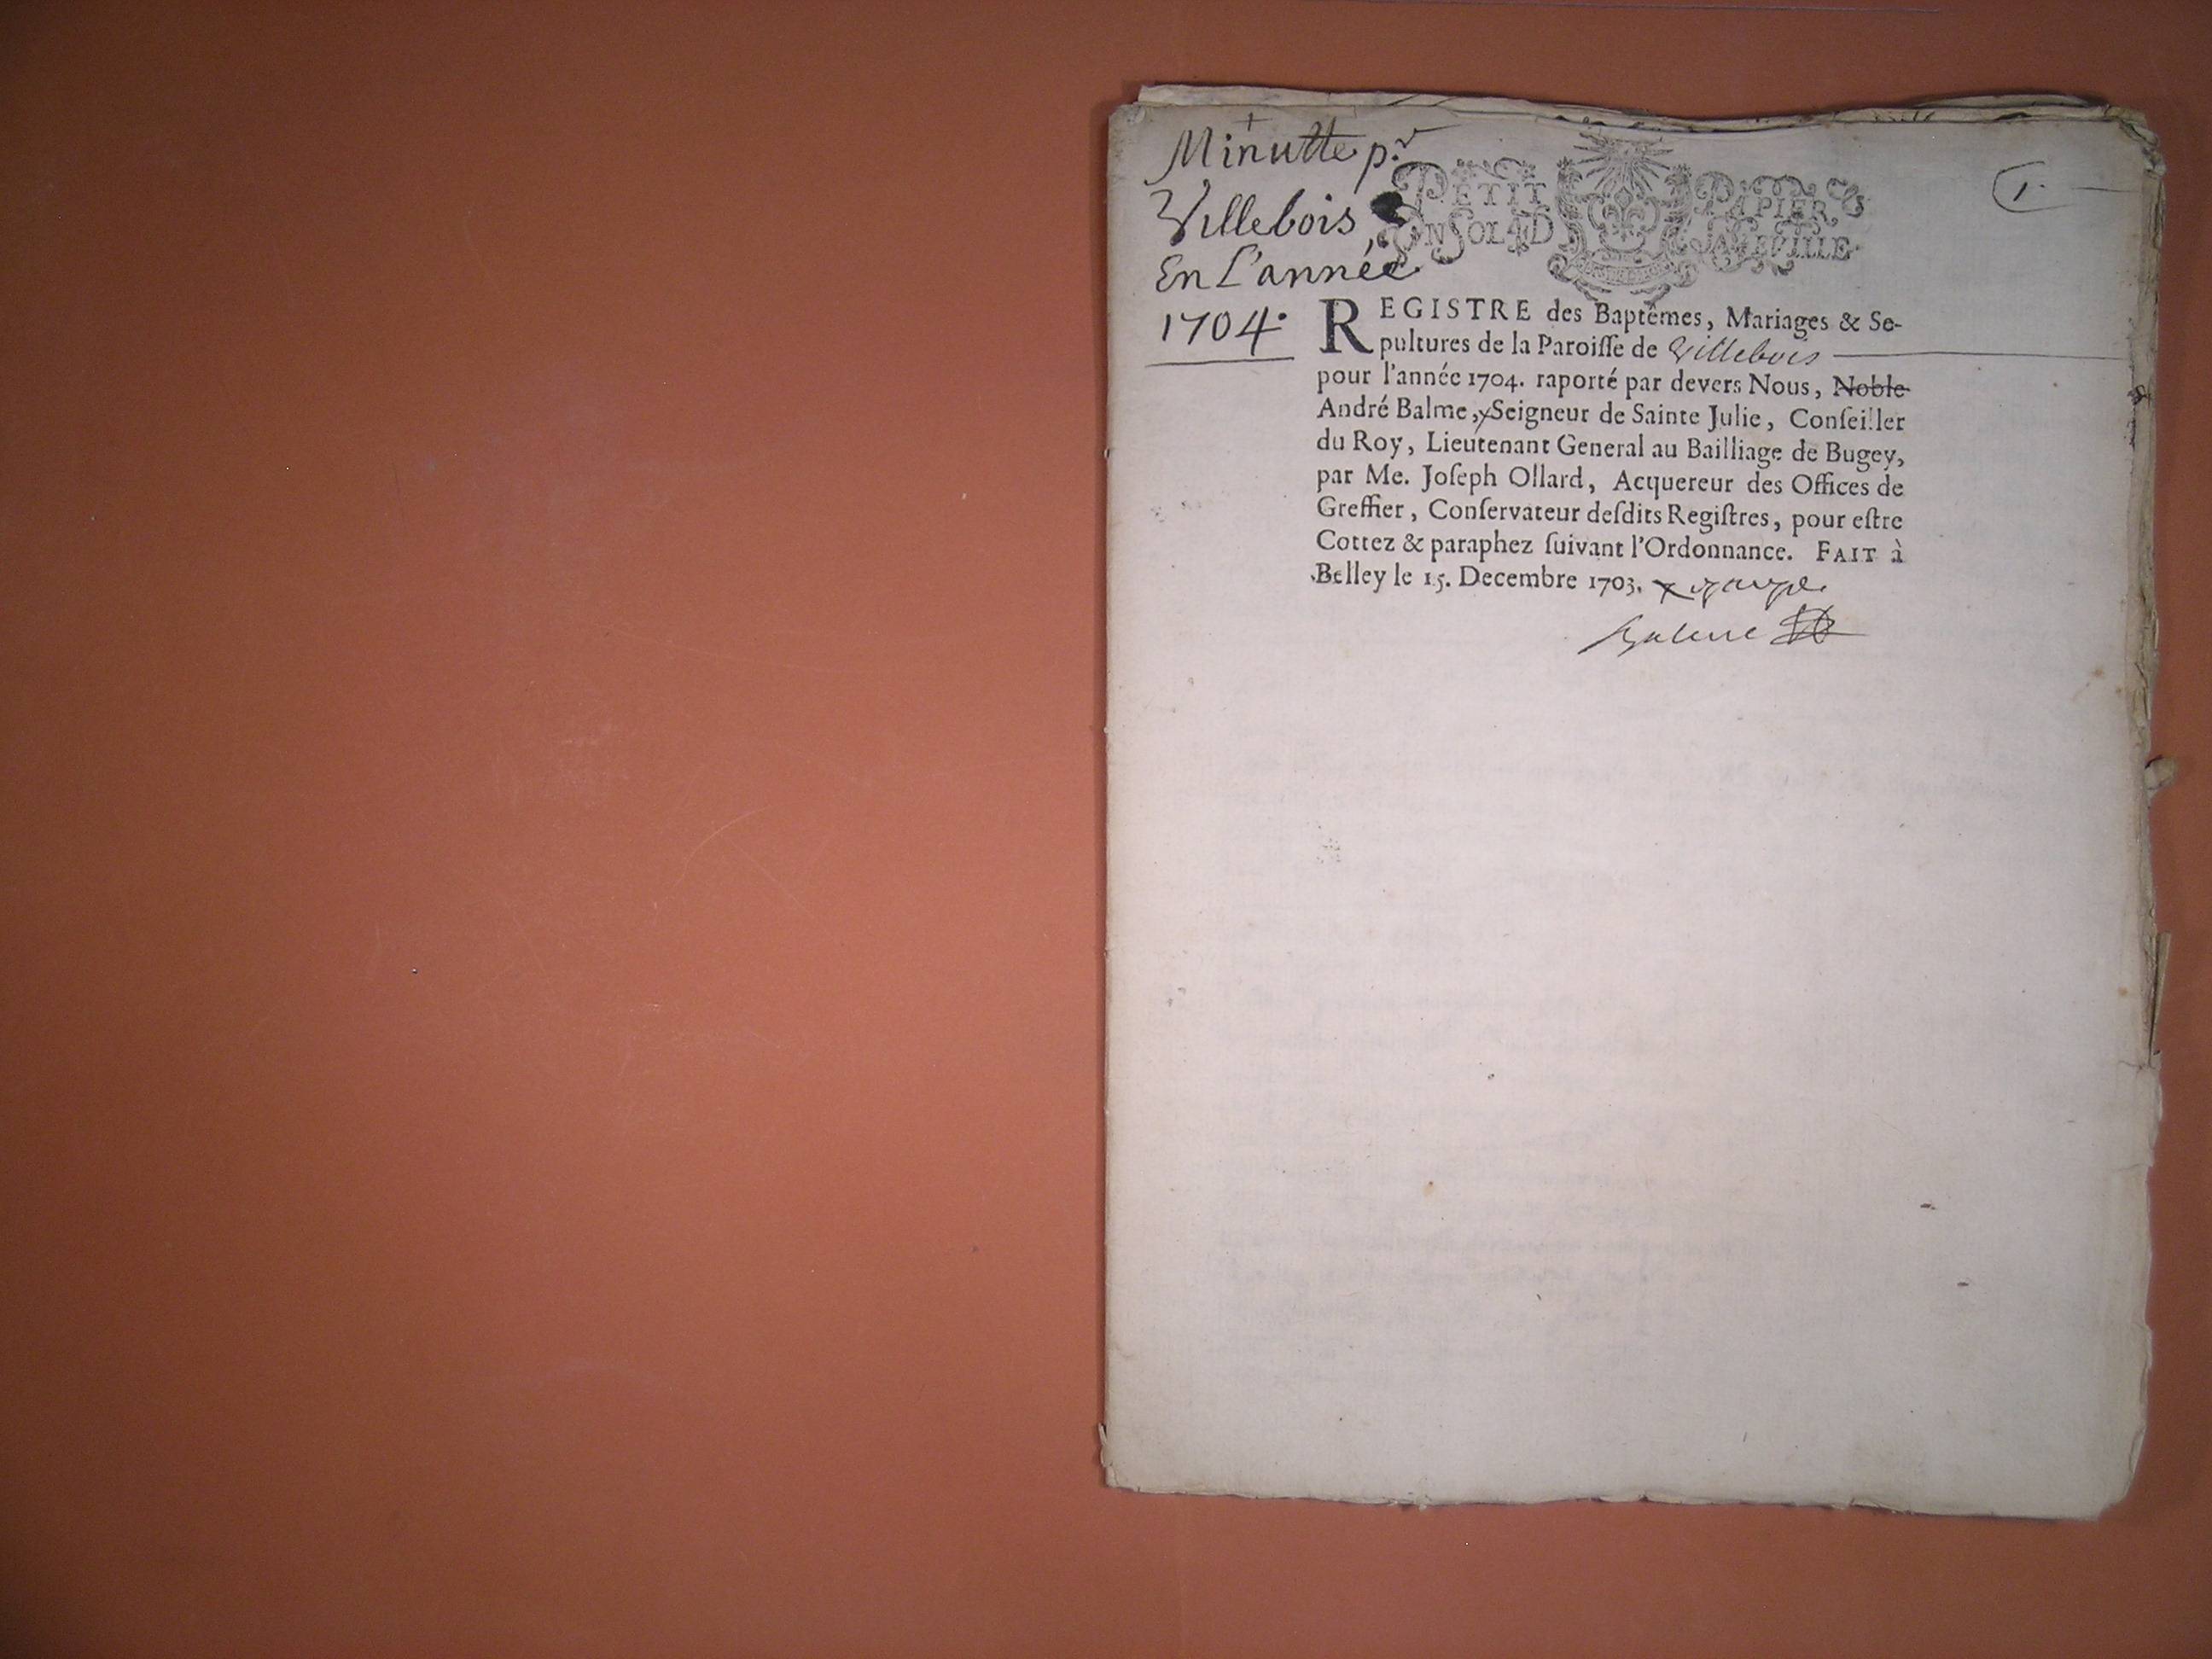 Minutte p.r
Villebois,
En L'année
1704.
PETIT PAPIER
UN SOL 4D LA FEUILLE
1.
REGISTRE des Baptêmes, Mariages & Se-
pultures de la Paroiſſe de Villebois
pour l'année 1704. raporté par devers Nous, Noble
André Balme, Seigneur de Sainte Julie, Conſeiller
du Roy, Lieutenant General au Bailliage de Bugey,
par Me. Joſeph Ollard, Acquereur des Offices de
Greffier, Conſervateur deſdits Regiſtres, pour eſtre
Cottez & paraphez ſuivant l'Ordonnance. FAIT à
Belley le 15. Decembre 1703.
Balme